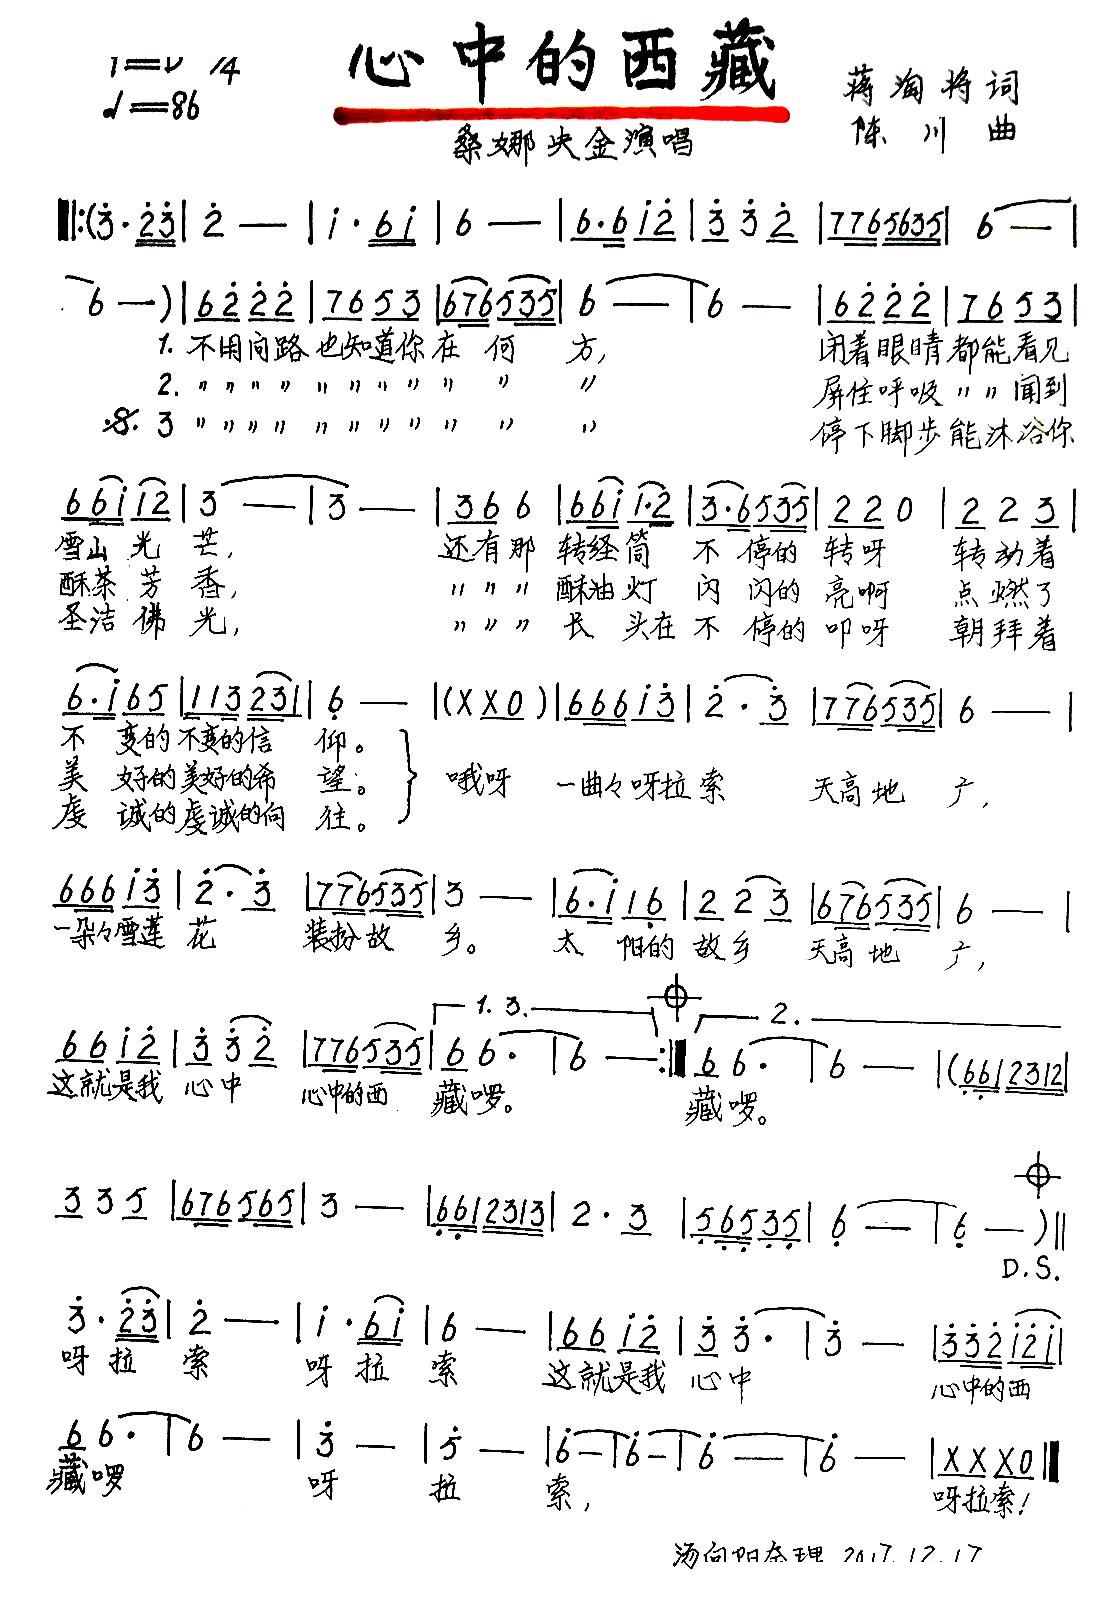 心中的西藏
♩=86
蒋淘将词
陈川曲
桑娜央金演唱
‖:(3·23|2—|1·61|6—|6·612|332|7765635|6—|
6—)|6222|7653|676535|6—|6—|6222|7653|
1. 不用问路也知道你在何方, 闭着眼睛都能看见
2. 〃〃〃〃〃〃〃〃〃〃〃 屏住呼吸〃〃闻到
3 〃〃〃〃〃〃〃〃〃〃〃 停下脚步能沐浴你
66112|3—|3—|366|6611·2|3·6535|220|223|
雪山光芒, 还有那转经筒不停的转呀转动着
酥茶芳香, 〃〃〃酥油灯闪闪的亮啊点燃了
圣洁佛光, 〃〃〃长头在不停的叩呀朝拜着
6·165|113231|6—|(XX0)|66613|2·3|776535|6—|
不变的不变的信仰。
美好的美好的希望。 哦呀 一曲々呀拉索 天高地广,
虔诚的虔诚的向往。
66613|2·3|776535|3—|6·116|223|676535|6—|
一朵々雪莲花 装扮故乡。 太阳的故乡 天高地广,
1. 3. 2.
6612|332|776535|66·|6—:‖66·|6—|(6612312|
这就是我心中 心中的西藏啰。 藏啰。
335|676565|3—|6612313|2·3|56535|6—|6—)‖
D.S.
3·23|2—|1·61|6—|6612|33·|3—|332121|
呀拉索 呀拉索 这就是我心中 心中的西
66·|6—|3—|5—|6—|6—|6—|6—|XXX0‖
藏啰 呀拉索, 呀拉索!
2017.12.17